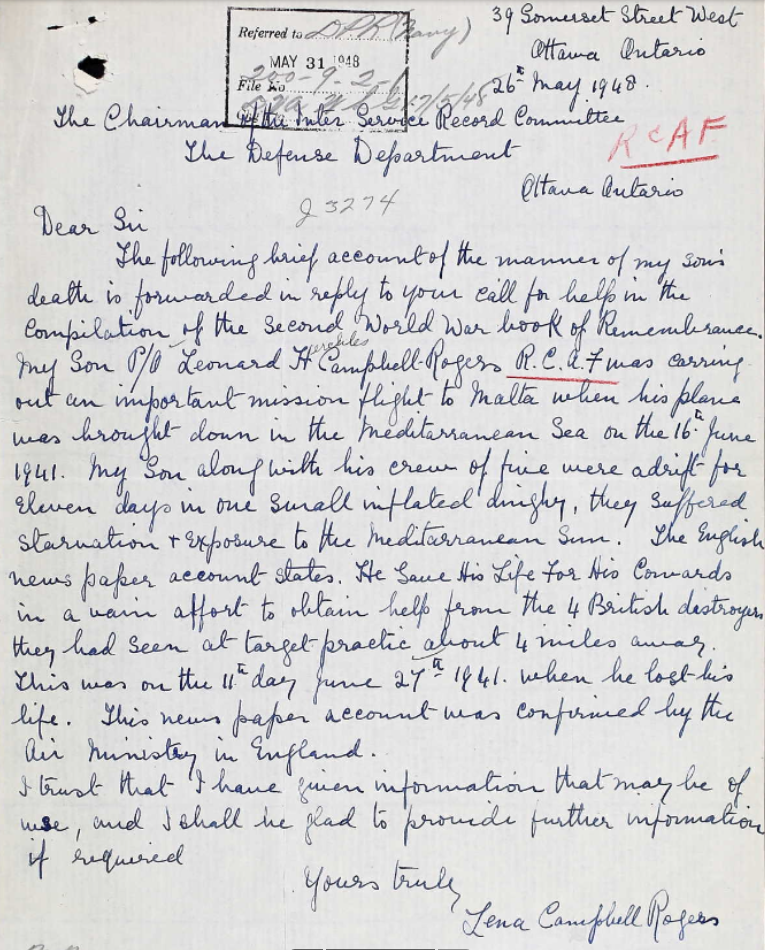 39 Somerset Street West
Referred to DPR (Navy)
Ottawa Ontario
MAY 31 1948
200-9-2-1
File No
26th May 1948.
17/5/48
The Chairman of the Inter Service Record Committee
R C A F
The Defense Department
Ottawa Ontario
J 3274
Dear Sir
The following brief account of the manner of my son's
death is forwarded in reply to your call for help in the
Compilation of the Second World War book of Remembrance.
My Son P/O Leonard H Campbell-Rogers R.C.A.F was carring
out an important mission flight to Malta when his plane
was brought down in the Meditarranean Sea on the 16th June
1941. My Son along with his crew of five were adrift for
Eleven days in one small inflated dinghy, they suffered
starvation + Exposure to the Meditarranean Sun. The English
news paper account states. He Gave His Life For His Comards
in a vain affort to obtain help from the 4 British destroyers
they had seen at target practic about 4 miles away.
This was on the 11th day June 27th 1941. when he lost his
life. This news paper account was confirmed by the
Air Ministry in England.
I trust that I have given information that may be of
use, and I shall be glad to provide further information
if required
Yours truly
Lena Campbell Rogers